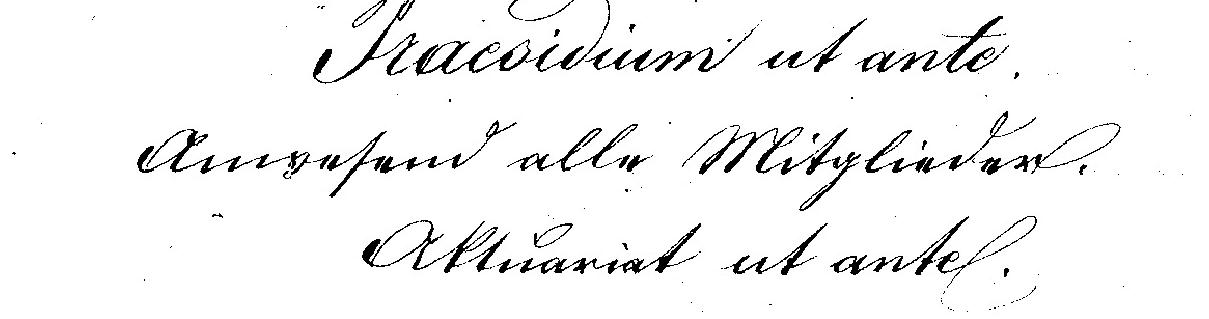 Praesidium ut ante.
Anwesend alle Mitglieder.
Aktuariat ut ante.